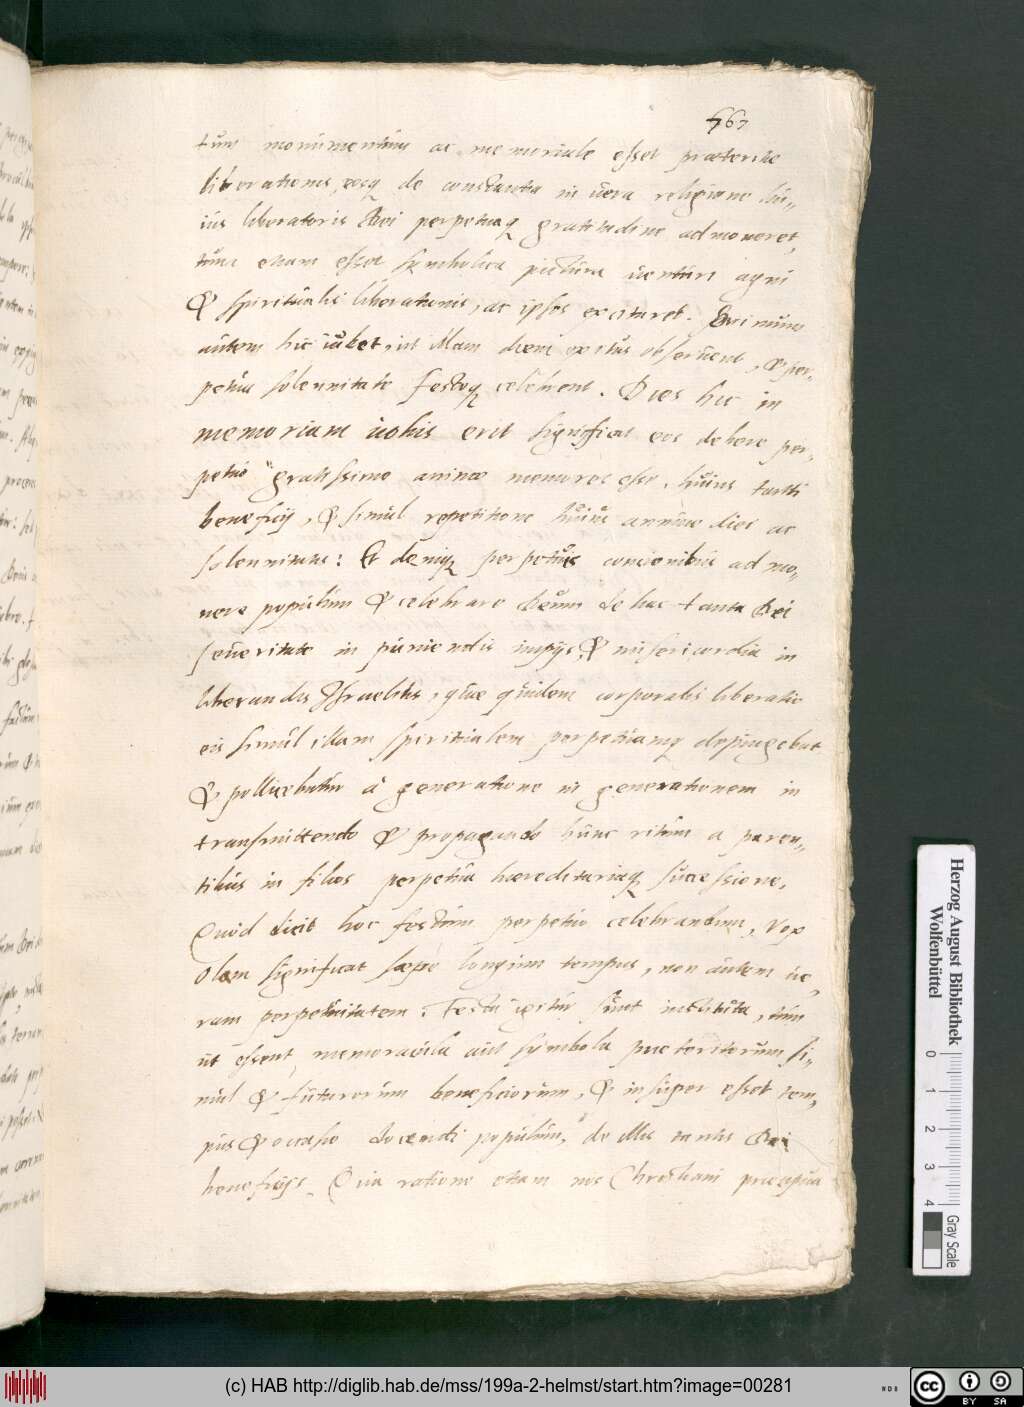 567
tum monumentum ac memoriale esset præteritæ
liberationis, eosq de constantia in uera religione hu„
ius liberatoris Dei perpetuaq gratitudine admoneret,
tum etiam esset symbolica pictura uenturi agni
& spiritualis liberationis, ac ipsos excitaret. Primum
autem hic iubet, ut illum diem exitus obseruent, & per„
petua solennitate Festoq celebrent. Dies hic in
memoriam uobis erit significat eos debere per„
petuo gratissimo animo memores esse, huius tanti
beneficij, & simul repetitione huius annuæ diei ac
solennitatis: Et deniq perpetuis concionibus admo„
nere populum & celebrare Deum de hac tanta Dei
seueritate in puniendis impijs & misericordia in
liberandis Israelitis, quæ quidem corporalis liberatio
eis simul illam spiritualem perpetuamq depingebat
& pollicebatur à generatione in generationem in
transmittendo & propagando hunc ritum a paren„
tibus in filios perpetua hæreditariaq successione.
Quod dicit hoc festum perpetuo celebrandum, Vox
Olam significat sæpe longum tempus, non autem ue„
ram perpetuitatem. Festa igitur sunt instituta, tum
ut essent memoracula aut symbola præteritorum si„
mul & futurorum beneficiorum, & insuper esset tem„
pus & occasio docendi populum, de illis tantis Dei
beneficijs. Qua ratione etiam nos Christiani præcipua
Herzog August Bibliothek
Wolfenbüttel
0 1 2 3 4
Gray Scale
(c) HAB http://diglib.hab.de/mss/199a-2-helmst/start.htm?image=00281
cc BY SA